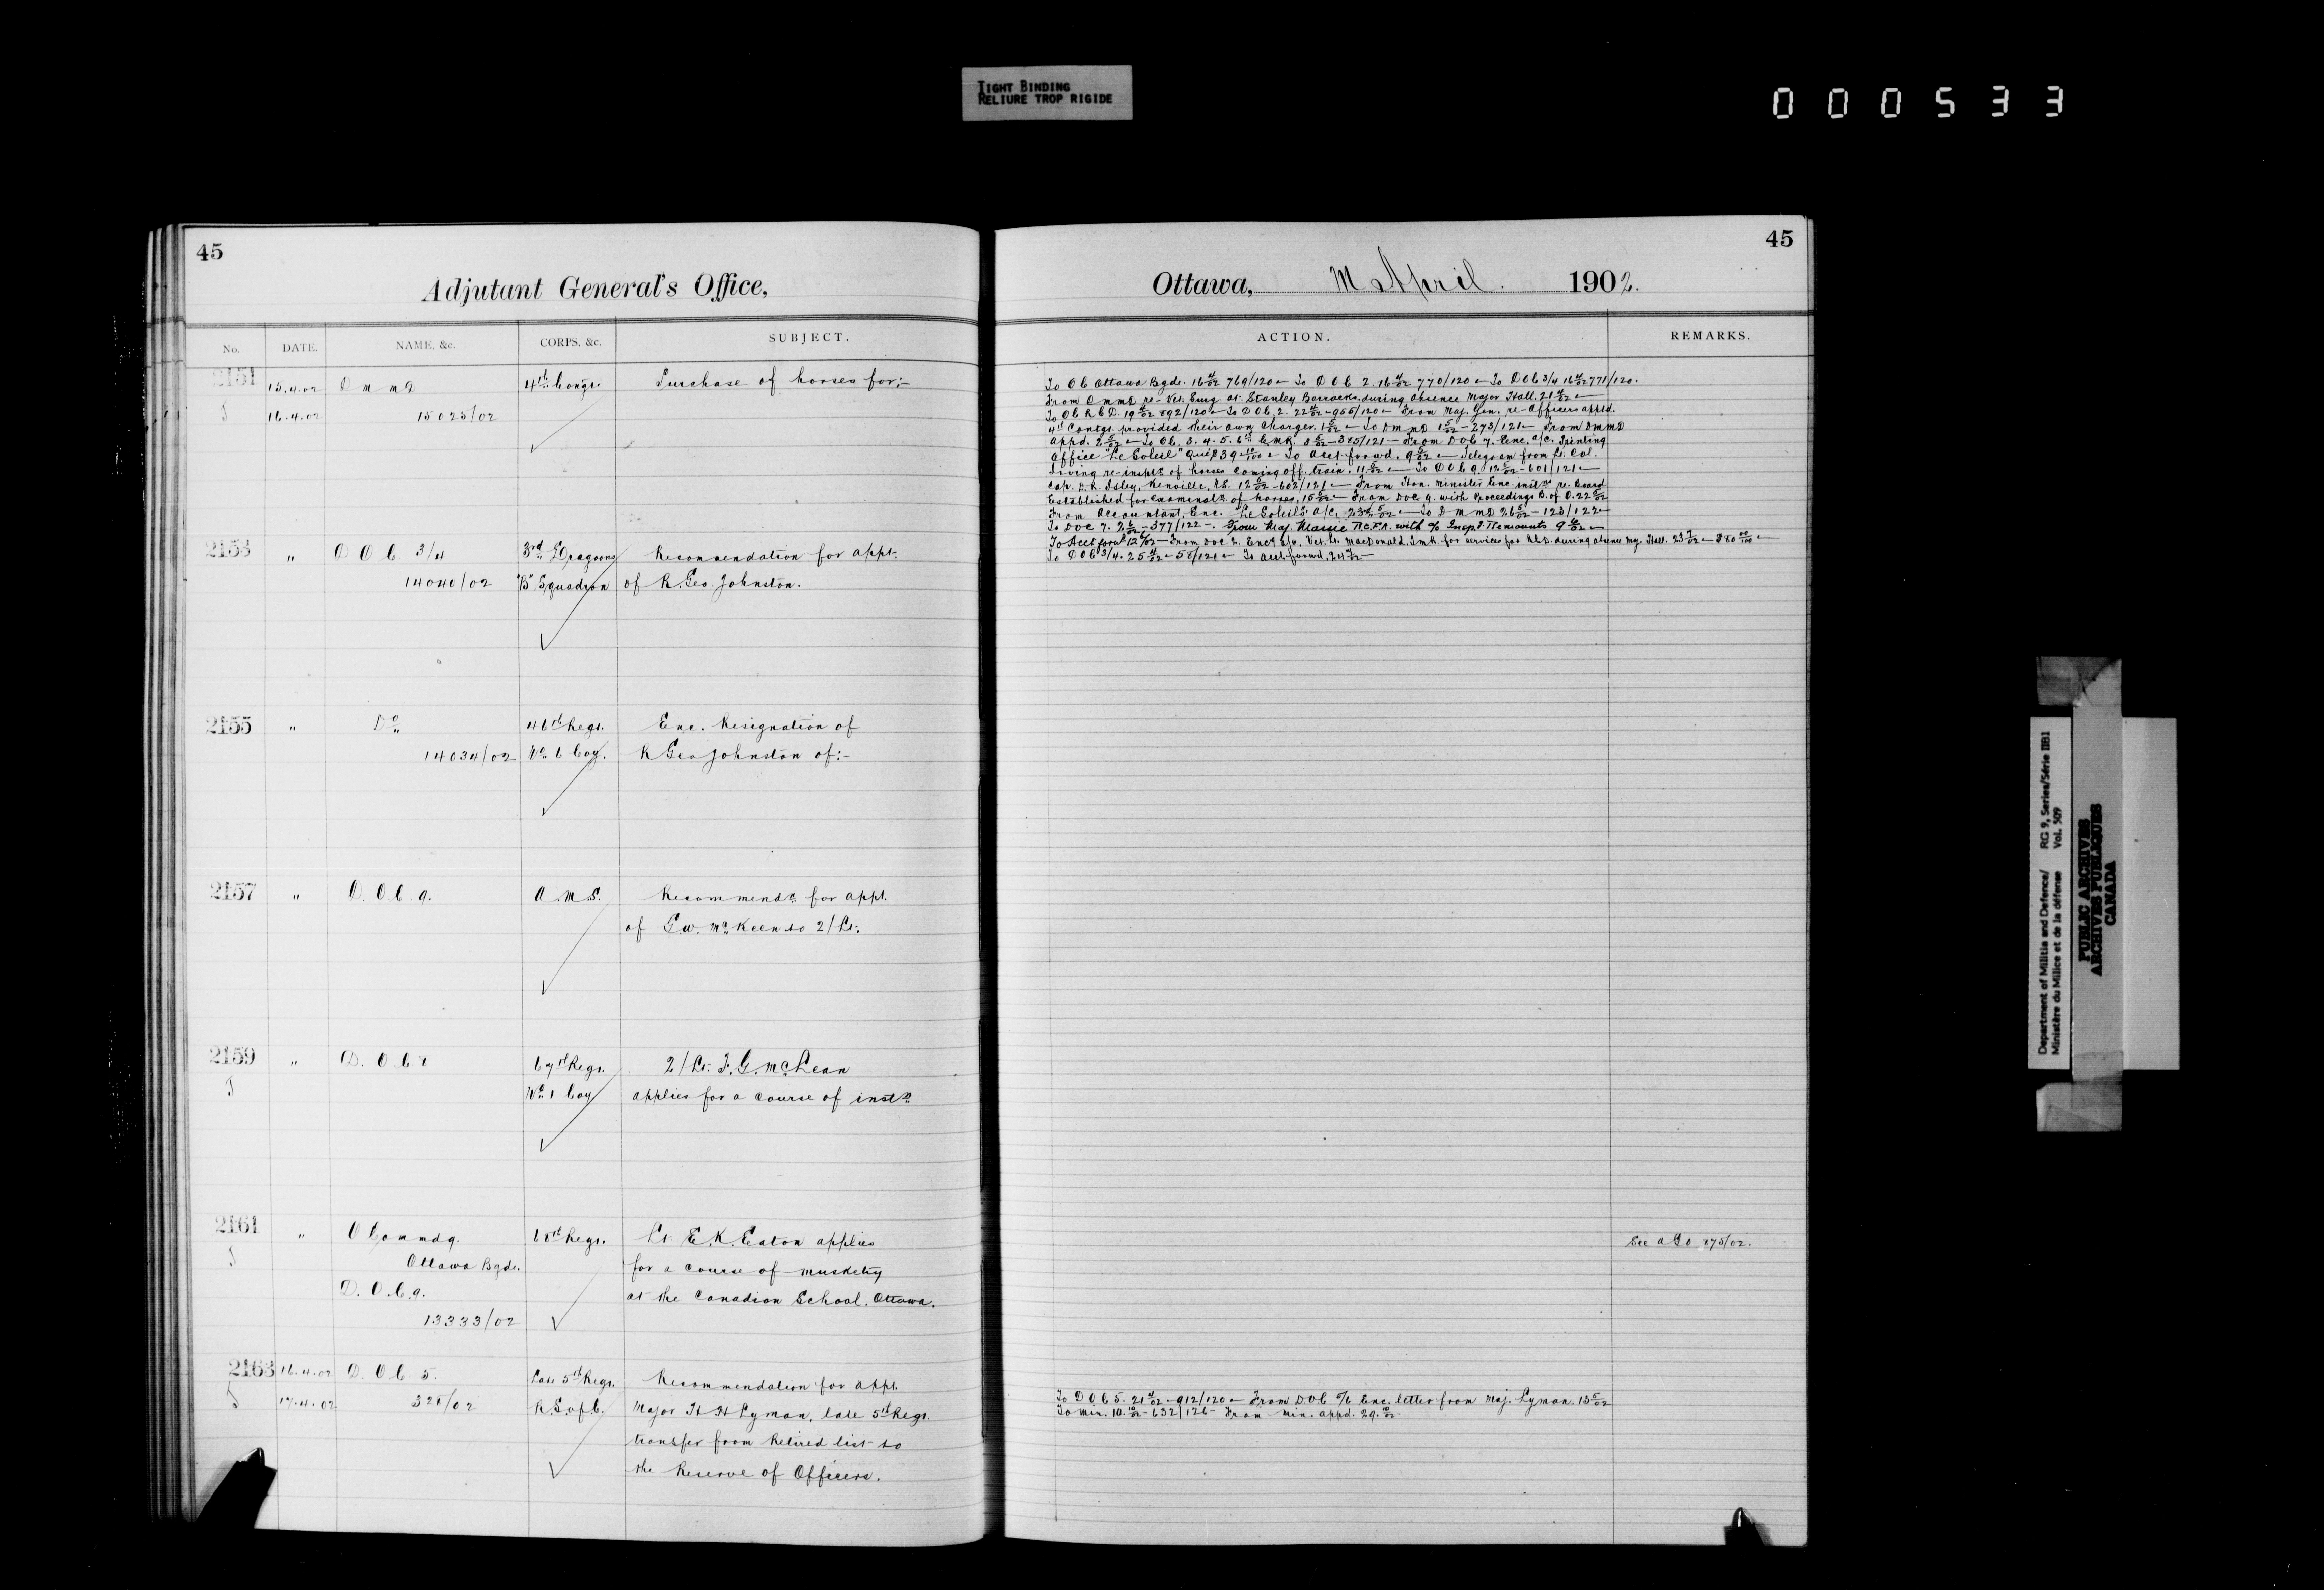 TIGHT BINDING
RELIURE TROP RIGIDE
000533
45
Adjutant General's Office,
No. DATE. NAME, &c. CORPS, &c. SUBJECT.
2151 15.4.02 D M M D 4th Contgt. Purchase of horses for:-
16.4.02 15025/02
2153 " D O C 3/4 3rd Dragoons Recommendation for appt.
14040/02 "B" Squadron of R. Geo. Johnston.
2155 " Do 46th Regt. Enc. Resignation of
14034/02 No. 6 Coy. R Geo Johnston of:-
2157 " D. O. C. 9. A.M.S. Recommendn for appt.
of G.W. McKeen to 2/Lt.
2159 " D. O. C 8 67th Regt. 2/Lt. F. G. McLean
No. 1 Coy applies for a course of instn
2161 " O Commdg. 68th Regt. Lt. E. K. Eaton applies
Ottawa Bgde. for a course of musketry
D. O. C. 9. at the Canadian School, Ottawa.
13333/02
2163 16.4.02 D. O C 5. Late 5th Regt. Recommendation for appt.
17.4.02 328/02 R S. of C. Major H H Lyman, late 5th Regt.
transfer from Retired list to
the Reserve of Officers.
45
Ottawa, M April. 1902.
ACTION. REMARKS.
To O C Ottawa Bgde. 16 4/02 769/120 - To D O C 2. 16 4/02 770/120 - To D O C 3/4 16 4/02 771/120.
From D M M D re- Vet. Surg at Stanley Barracks during absence Major Hall. 21 4/02 -
To O C R C D. 19 4/02 892/120 - To D O C. 2. 22 4/02 - 956/120 - From Maj. Gen. re- Officers apptd.
4th Contgt. provided their own charger. 1 5/02 - To D M M D 1 5/02 - 273/121 - From D M M D
Appd. 2 5/02 - To O C. 3. 4. 5. 6th C.M.R. 3 5/02 - 385/121 - From D O C 7. Enc. a/c. Printing
Office "Le Soleil" To Acct. forwd. 9 5/02 - Telegram from Lt. Col.
Irving re-inspn of horses coming off train. 11 5/02 - To D O C 9. 12 5/02 - 601/121 -
Cap. D. R. Isley, Kenville, N.S. 12 5/02 - 602/121 - From Hon. Minister Enc. instns re. Board
Established for examinatn of horses, 15 5/02 - From DOC 9. with Proceedings B. of O. 22 5/02
From Accountant, Enc. "Le Soleil's" a/c. 23rd 5/02 - To D M M D 26 5/02 - 123/122 -
To DOC 7. 2 6/02 - 377/122 -. From Maj. Massie R.C.F.A. with % Inspn Remounts 9 6/02 -
To Acct forwd 12 6/02 - From DOC 2. Encg a/c. Vet. Lt. MacDonald. for services for R.C.D. during absence Maj. Hall. 23 7/02 - $80 00/100 -
To D O C 3/4. 25 4/02 - 58/121 - To Acct. forwd. 24 7/02 -
See A G O 875/02.
To D O C 5. 21 4/02 - 912/120 - From D O C 5/6 Enc. letter from Maj. Lyman. 13 5/02
To Min. 10. 10/02 - 632/126 - From Min. appd. 29. 10/02 -
Department of Militia and Defence/ RG 9, Series/Série IIB1
Ministère du Milice et de la défense Vol. 509
PUBLIC ARCHIVES
ARCHIVES PUBLIQUES
CANADA